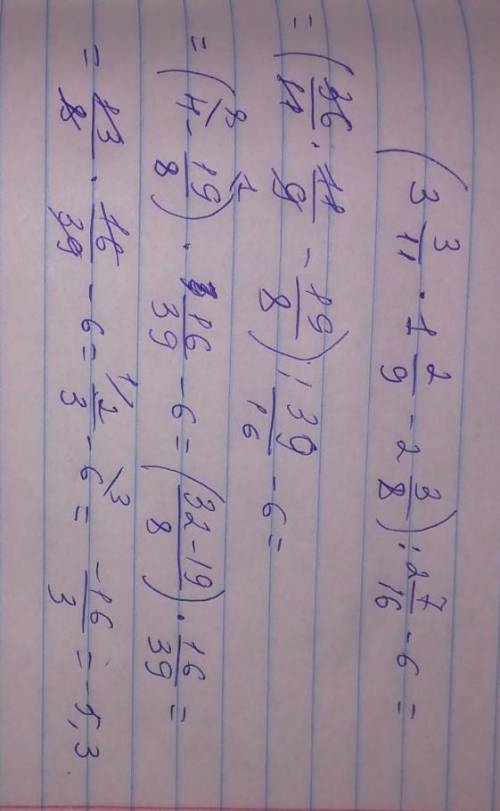 (3 3/11 · 1 2/9 - 2 3/8) : 2 7/16 - 6 =
= (36/11 · 11/9 - 19/8) : 39/16 - 6 =
= (4 - 19/8) · 16/39 - 6 = (32-19/8) · 16/39 =
= 13/8 · 16/39 - 6 = 2/3 - 6 = -16/3 = -5,3